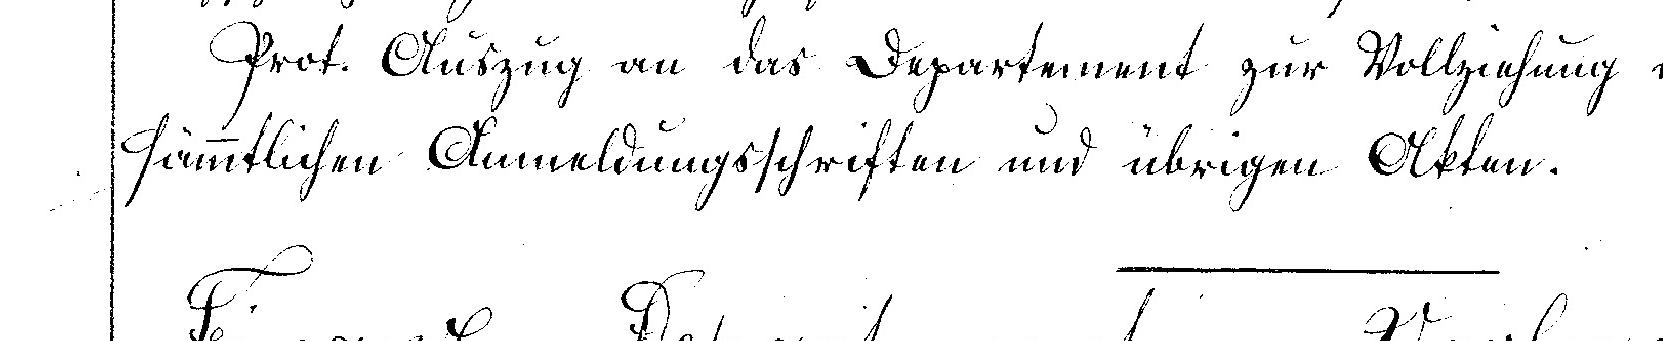 Prot. Auszug an das Departement zur Vollziehung
sämtlichen Anmeldungsschriften und übrigen Akten.